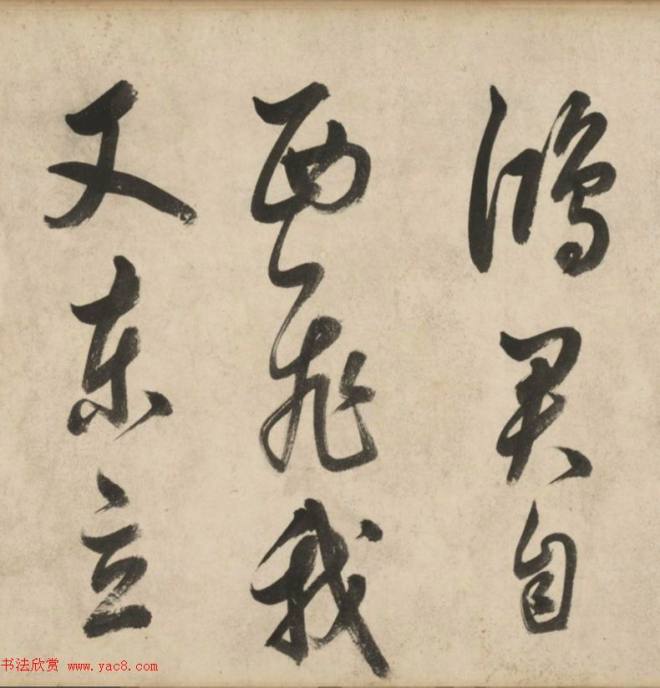 鴻冥自
西飛我
又東立
书法欣赏 www.yac8.com